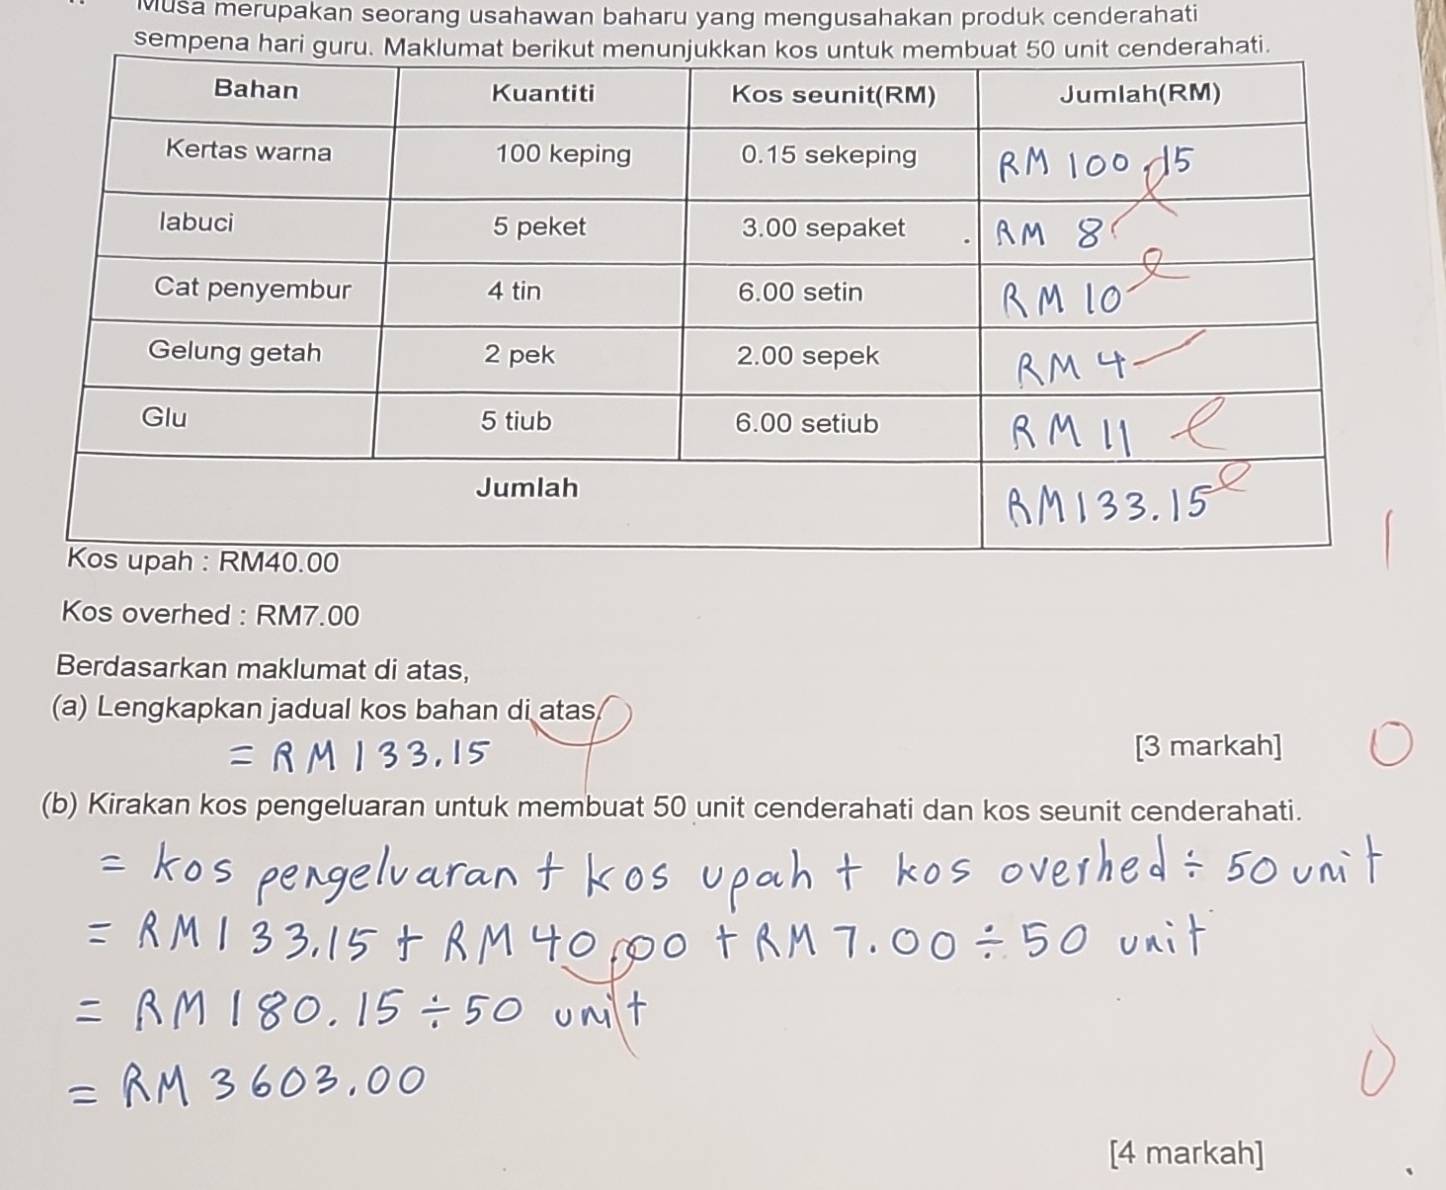 Musa merupakan seorang usahawan baharu yang mengusahakan produk cenderahati
sempena hari guru. Maklumat berikut menunjukkan kos untuk membuat 50 unit cenderahati.
Bahan Kuantiti Kos seunit(RM) Jumlah(RM)
Kertas warna 100 keping 0.15 sekeping RM 100.15
labuci 5 peket 3.00 sepaket RM 8
Cat penyembur 4 tin 6.00 setin RM 10
Gelung getah 2 pek 2.00 sepek RM 4
Glu 5 tiub 6.00 setiub RM 11
Jumlah RM133.15
1
Kos upah : RM40.00
Kos overhed : RM7.00
Berdasarkan maklumat di atas,
(a) Lengkapkan jadual kos bahan di atas.
= RM133.15
[3 markah] 0
(b) Kirakan kos pengeluaran untuk membuat 50 unit cenderahati dan kos seunit cenderahati.
= kos pengelvaran + kos upah + kos overhed ÷ 50 unit
= RM133.15 + RM40.00 + RM7.00 ÷ 50 unit
= RM180.15 ÷ 50 unit
= RM3603.00
0
[4 markah]